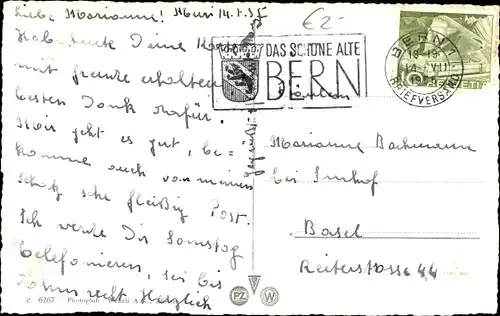 Liebe Marianne! Muri 14.7.55
Habe heute Deine Karte
mit Freude erhalten
besten Dank dafür.
Mir geht es gut, be-
komme auch von meinem
Schatz sehr fleißig Post.
Ich werde Dir Samstag
telefonieren, sei bis
dahin recht herzlich
gegrüßt
€2-
DAS SCHÖNE ALTE
BERN
BERN 1
BRIEFVERSAND
HELVETIA
Marianne Bachmann
bei Imhof
Basel
Reiterstrasse 44
6167 Photoglob
PZ W